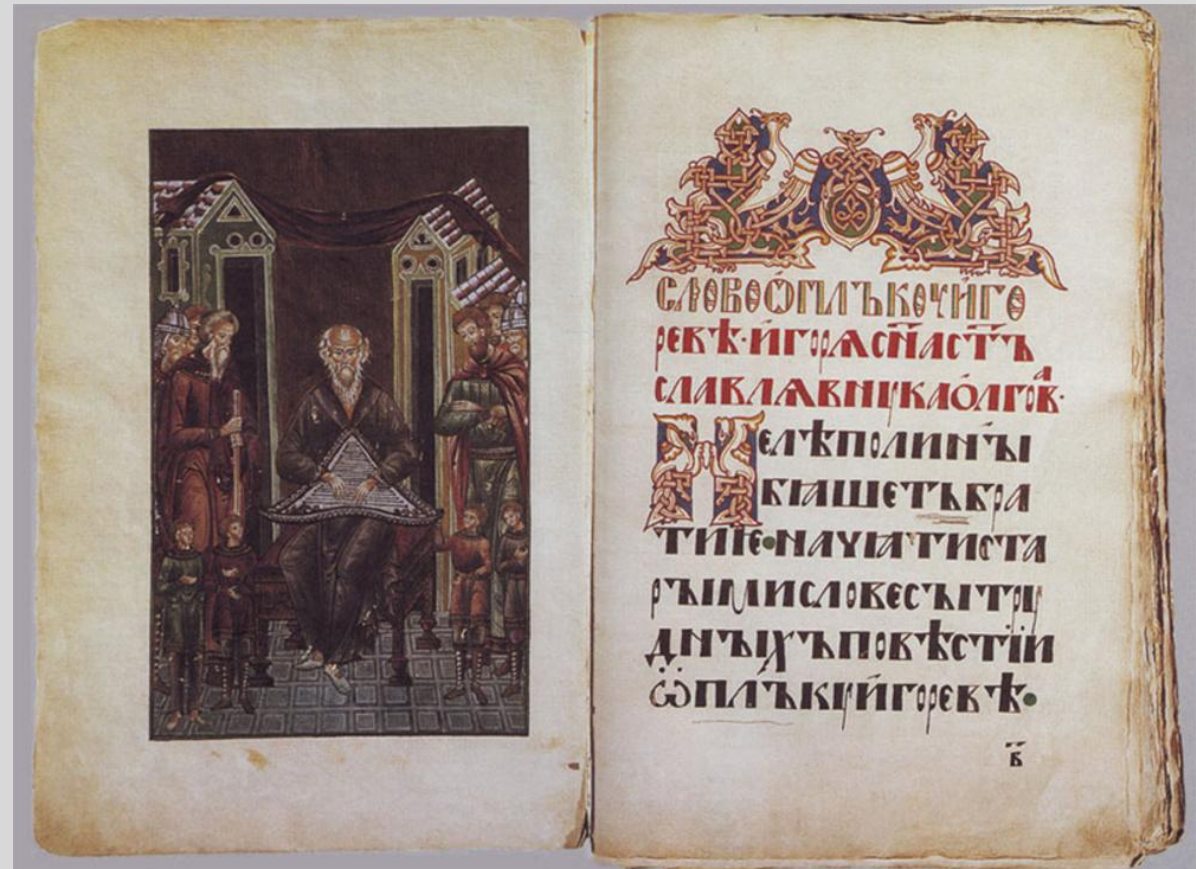 СЛОВОѾПЛЪКОЧИ́ГО
РЕВѢ·И́ГОРѦСН҃АСТ҃Ъ
СЛАВЛѦВНꙋКАО́ЛГОВⷶ·
НЕЛѢПОЛИНꙐ
БꙖШЕТЬБРА
ТИѤ•НАЧѦТИСТА
РꙐМИСЛОВЕСꙐТРꙋ
ДНꙐХЪПОВѢСТІ́И
ѼПЛЪКꙋИ́ГОРЕВѢ•
В҃